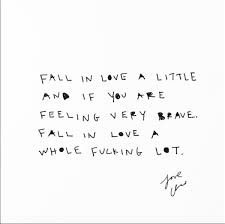 FALL IN LOVE A LITTLE
AND IF YOU ARE
FEELING VERY BRAVE.
FALL IN LOVE A
WHOLE FUCKING LOT.
love